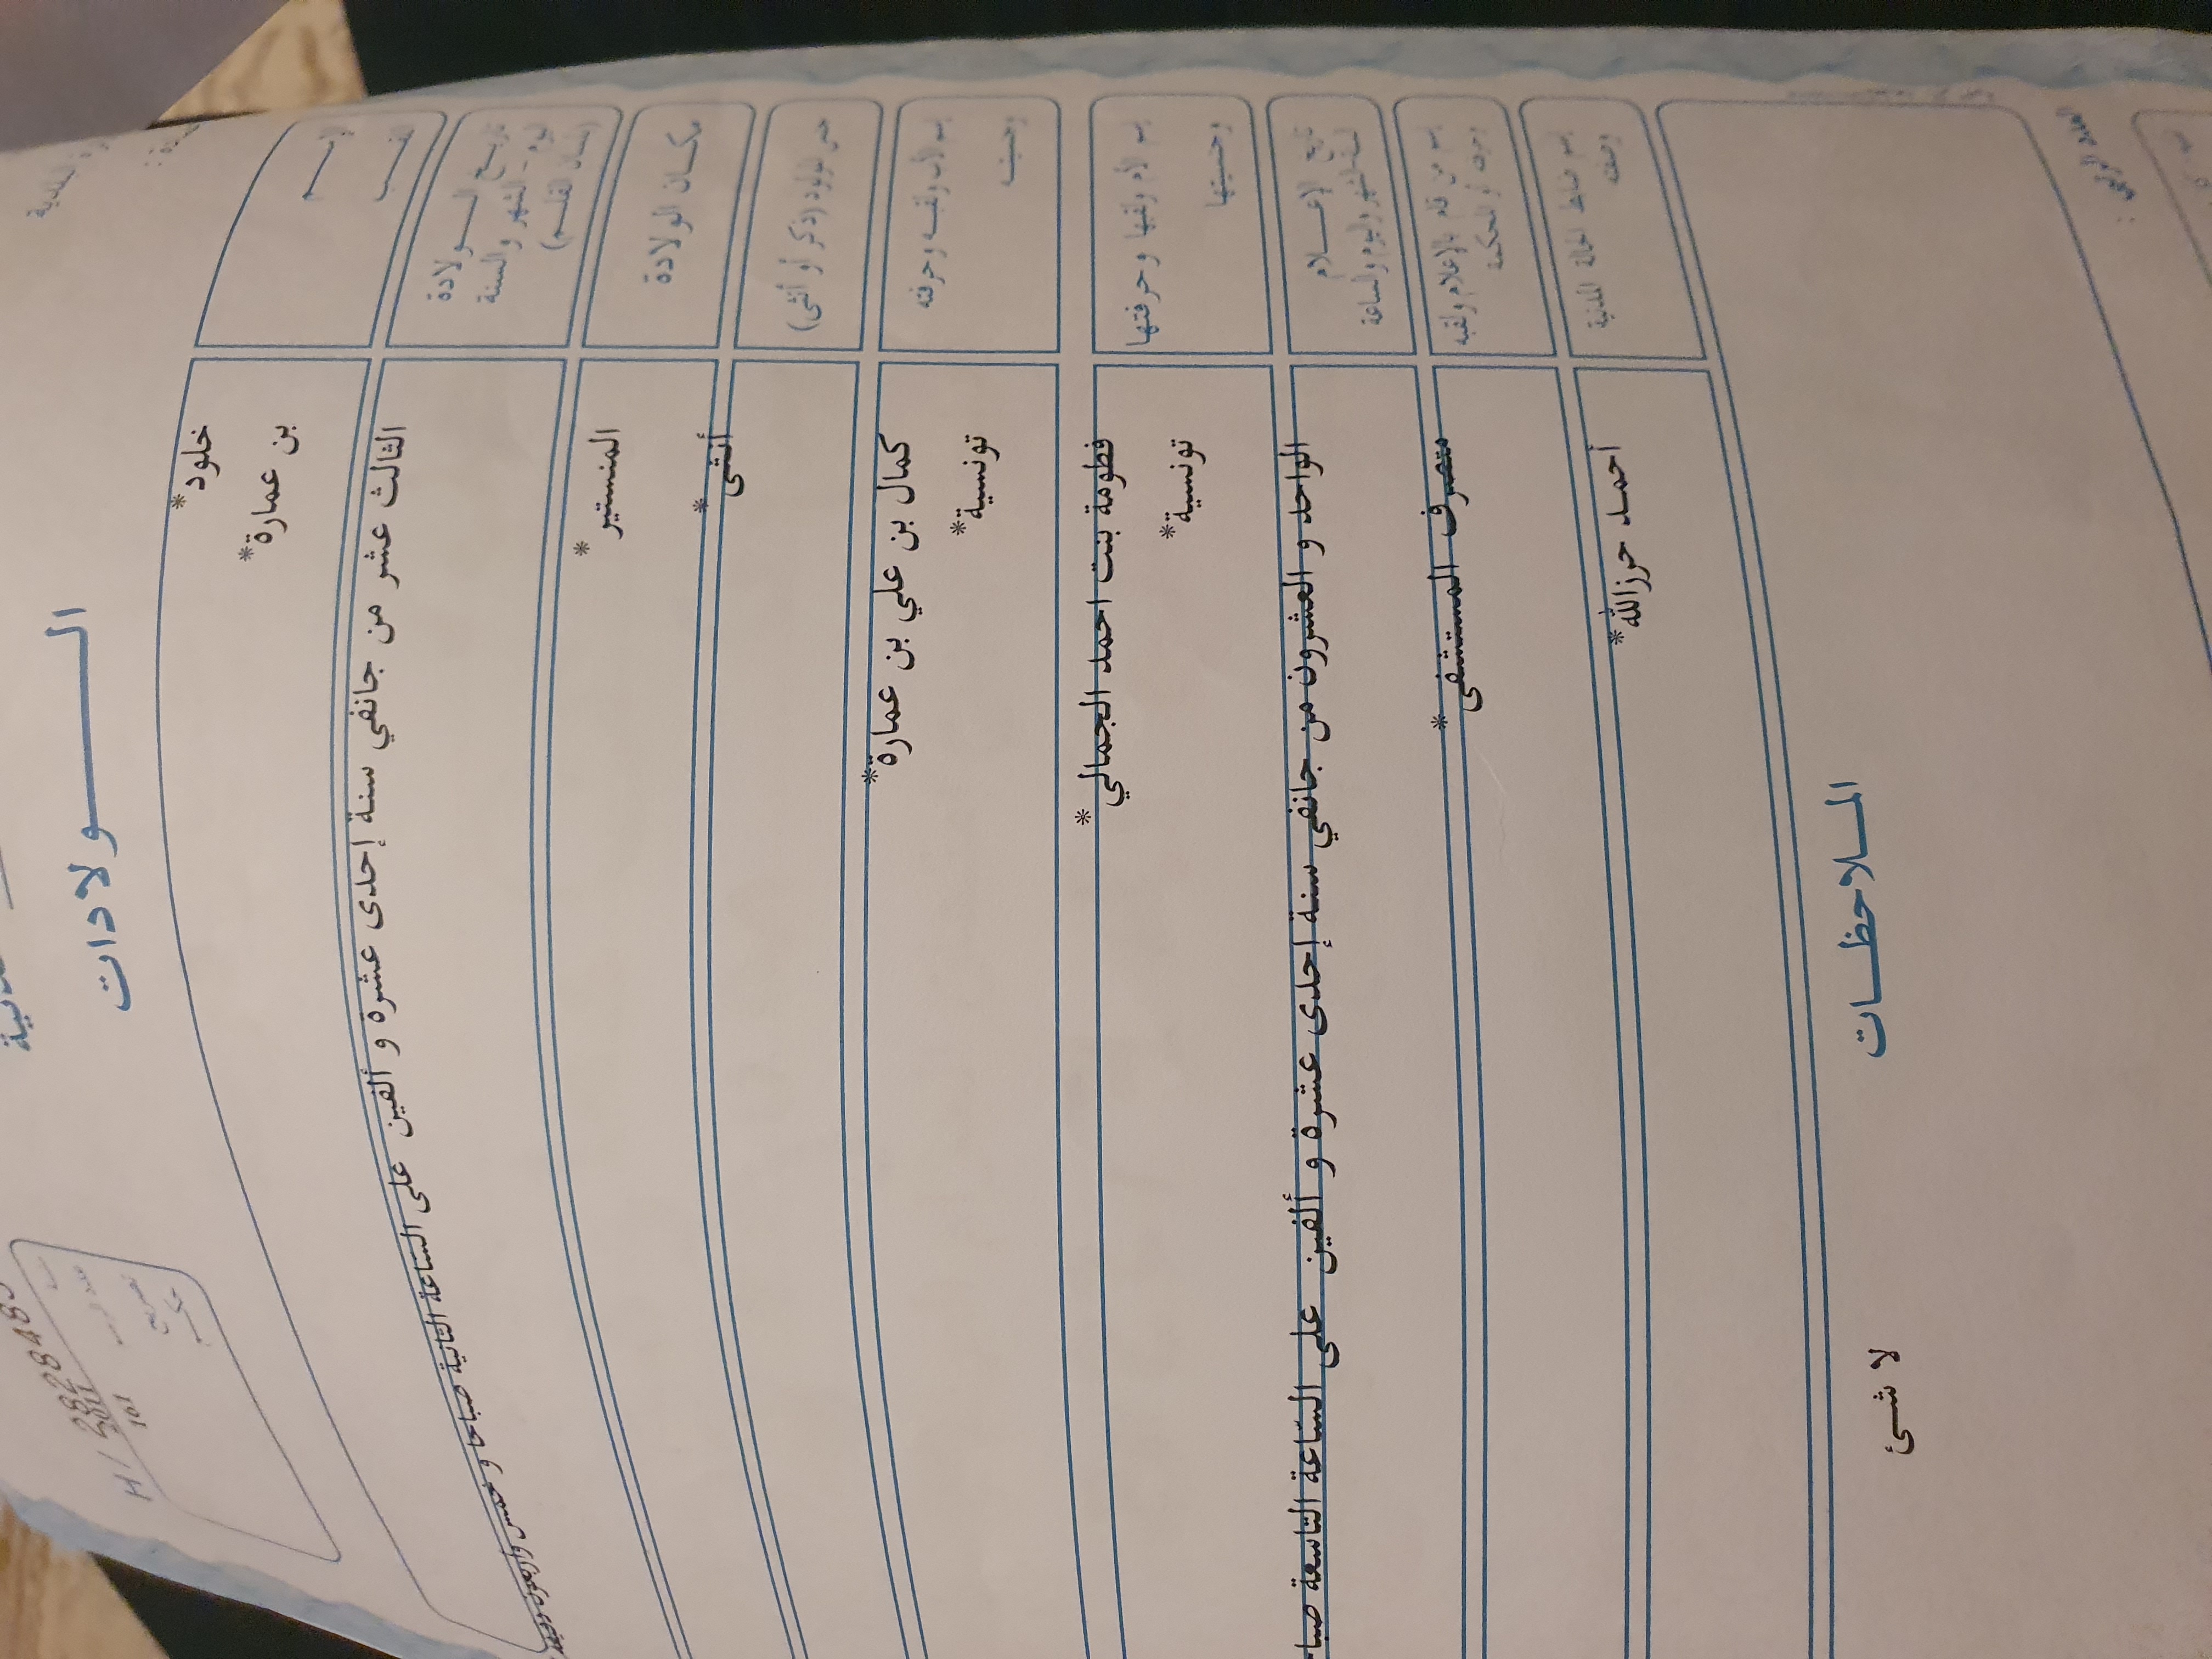 الـــــولادات
H/ 2828485
2011
161
الإســـم
اللقـــب
خلود*
بن عمارة*
تاريـــخ الـــــولادة
اليوم - الشهر والسنة
(بلسان القلـــم)
الثالث عشر من جانفي سنة إحدى عشرة و ألفين على السّاعة الثانية صباحا و خمس وأربعون دقيقة
مكـــان الولادة
المنستير*
جنس المولود (ذكر أو أنثى)
أنثى*
إسم الأب ولقبـه وحرفته
وجنسيتـه
كمال بن علي بن عمارة*
تونسية*
إسم الأم ولقبها وحرفتها
وجنسيتها
فطومة بنت احمد الجمالي*
تونسية*
تاريخ الإعـــــلام
السنة والشهر واليوم والساعة
الواحد و العشرون من جانفي سنة إحدى عشرة و ألفين على السّاعة التاسعة صبا
إسم من قام بالإعلام ولقبه
وحرفته أو المحكمة
متصرف المستشفى*
إسم ضابط الحالة المدنية
وصفته
أحمد حرزالله*
المـــلاحظـــات
لا شئ